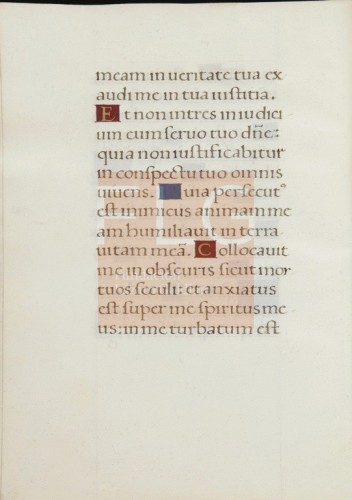 meam in ueritate tua ex
audi me in tua iustitia.
Et non intres in iudici
um cum seruo tuo dn̄e:
quia non iustificabitur
in conspectu tuo omnis
uiuens. Quia persecut᷒
est inimicus animam me
am humiliauit in terra
uitam meā. Collocauit
me in obscuris sicut mor
tuos seculi: et anxiatus
est super me spiritus me
us: in me turbatum est